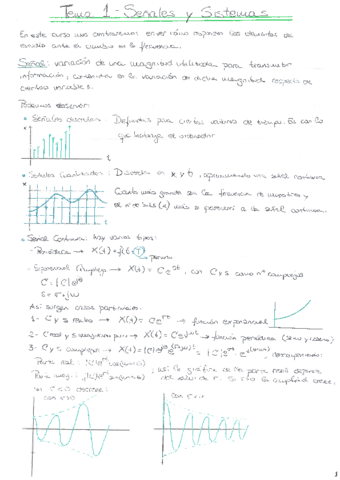 Tema 1 - Señales y Sistemas
En este curso nos centraremos en ver cómo responden los elementos de
estudio ante el cambio en la frecuencia.
Señal: variación de una magnitud utilizada para transmitir
información, consistente en la variación de dicha magnitud respecto de
cierta variable.
Podemos observar:
• Señales discretas: Definidas para ciertos valores de tiempo. Es con lo
que trabaja el ordenador
• Señales Cuantizadas: Discreta en x y t, aproximando una señal continua.
Cuanto más grande sea la frecuencia de muestreo y
el nº de bits más se parecerá a la señal continua.
• Señal Continua: hay varios tipos:
- Periódica → X(t) = f(t+T)
→ periodo
- Exponencial Compleja → X(t) = C e^st, con C y s como nº complejos
C = |C| e^jθ
s = σ + jω
Así surgen casos particulares:
1- C y s reales → X(t) = C e^σt → función exponencial
2- C real y s imaginario puro → X(t) = C e^jωt → función periódica (seno y coseno)
3- C y s complejos → X(t) = |C| e^jθ
Parte real:
Parte imag:
así la gráfica de la parte real depende
del valor de σ. Si σ>0 la amplitud crece,
si σ<0 decrece:
con σ>0
con σ<0
1